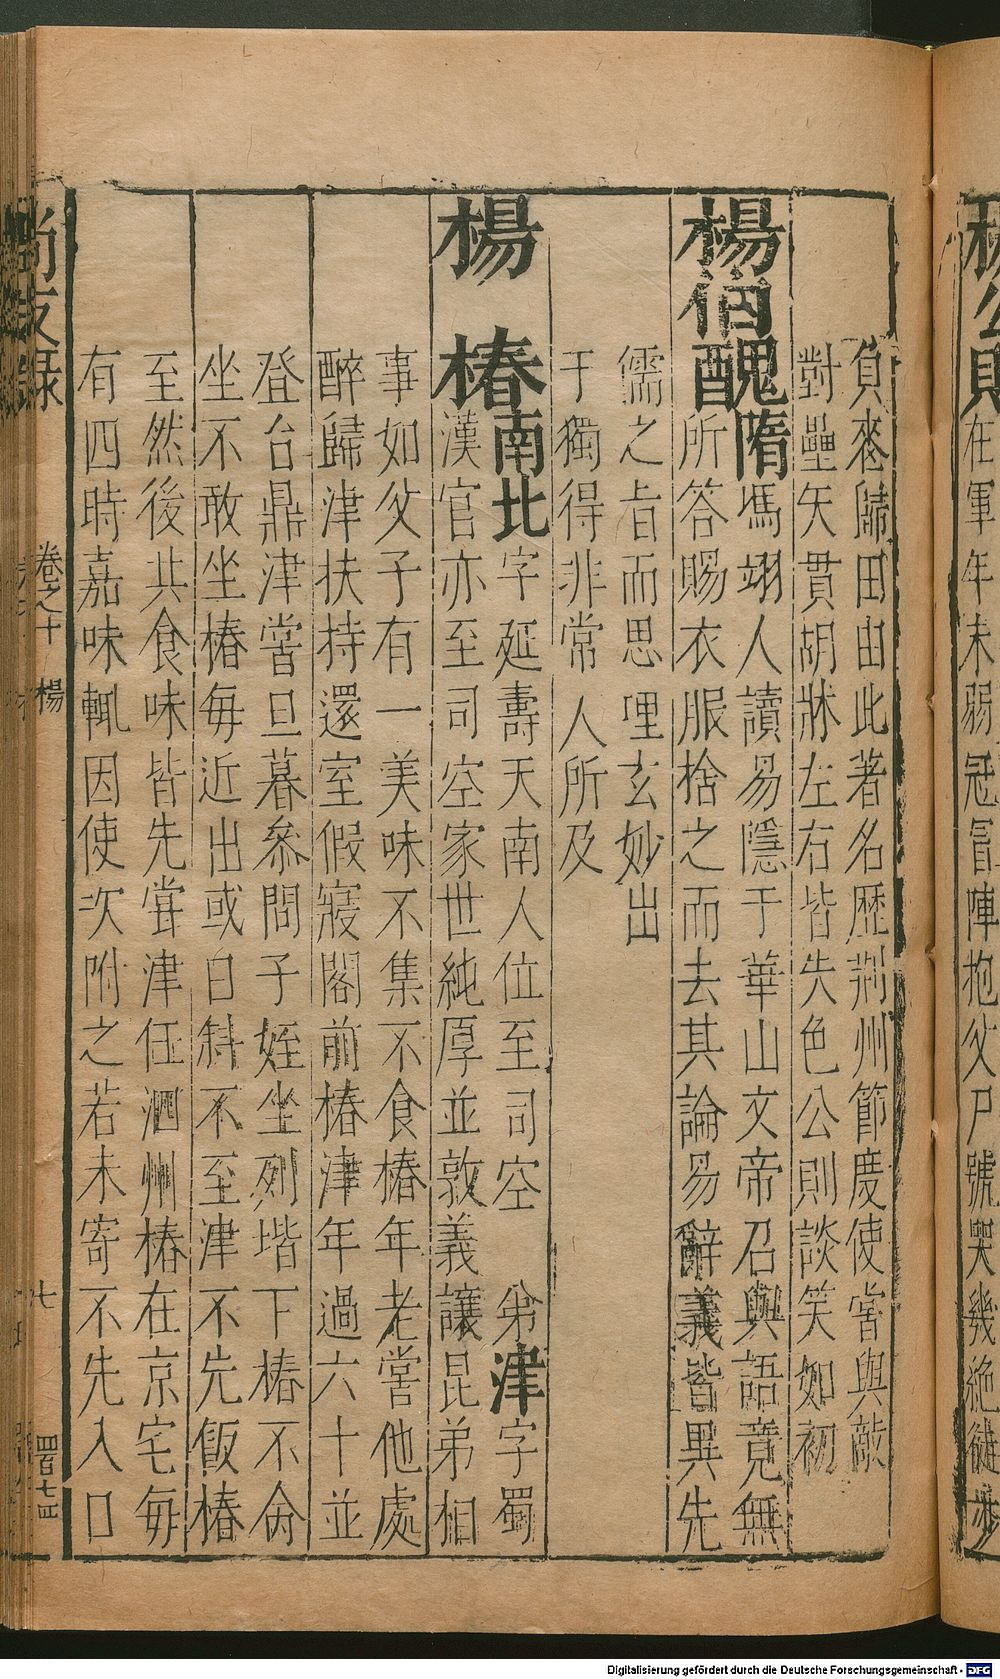 在軍年未弱冠冒陣抱父尸號哭幾絶徒步
負喪歸田由此著名歷荊州節度使嘗與敵
對壘矢貫胡牀左右皆失色公則談笑如初
楊伯醜隋馮翊人讀易隱于華山文帝召與語竟無
所答賜衣服捨之而去其論易辭義皆異先
儒之旨而思理玄妙出
于獨得非常人所及
楊 椿南北字延壽天南人位至司空 弟津字蜀
漢官亦至司空家世純厚並敦義讓昆弟相
事如父子有一美味不集不食椿年老嘗他處
醉歸津扶持還室假寢閣前椿津年過六十並
登台鼎津嘗旦暮參問子姪坐列堦下椿不命
坐不敢坐椿每近出或日斜不至津不先飯椿
至然後共食味皆先嘗津任泗州椿在京宅每
有四時嘉味輒因使次附之若未寄不先入口
尚友録 卷之十 楊 七
Digitalisierung gefördert durch die Deutsche Forschungsgemeinschaft - DFG